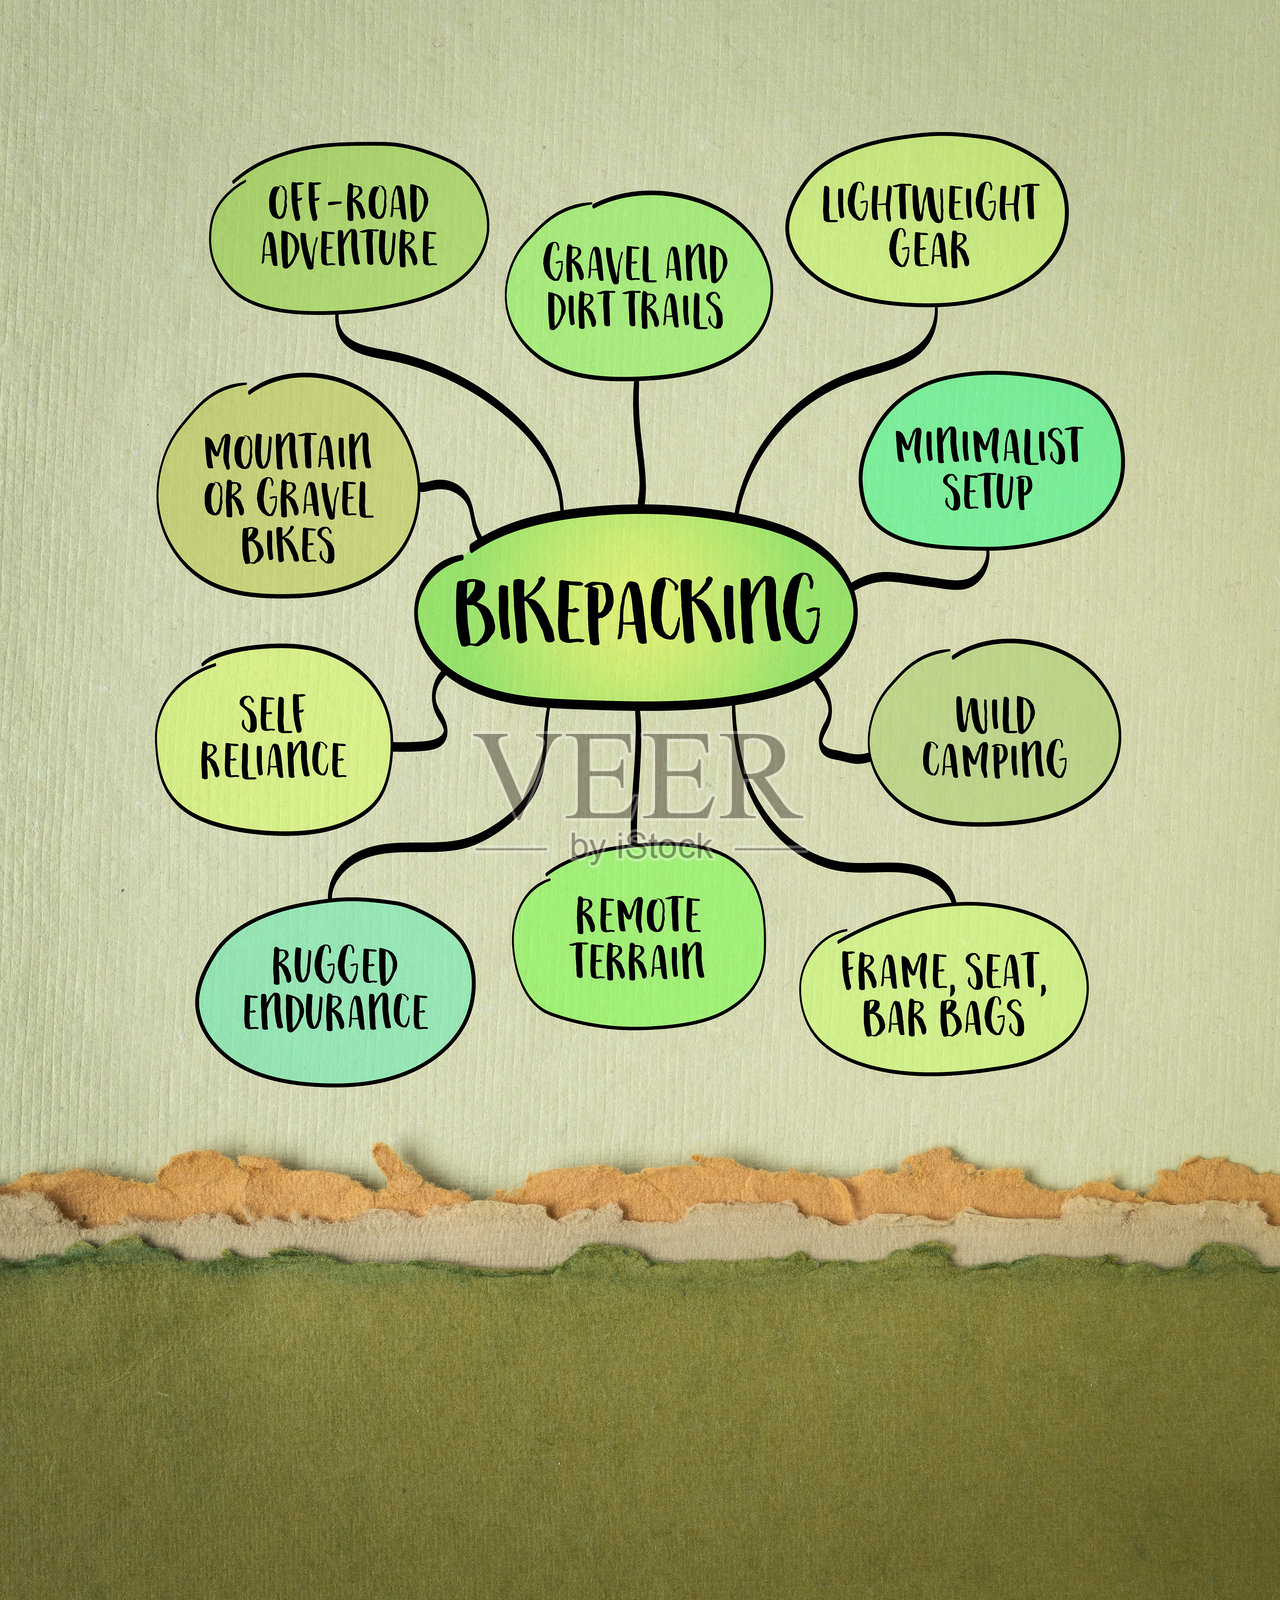 OFF-ROAD
ADVENTURE
GRAVEL AND
DIRT TRAILS
LIGHTWEIGHT
GEAR
MOUNTAIN
OR GRAVEL
BIKES
MINIMALIST
SETUP
BIKEPACKING
SELF
RELIANCE
WILD
CAMPING
VEER
by iStock
RUGGED
ENDURANCE
REMOTE
TERRAIN
FRAME, SEAT,
BAR BAGS